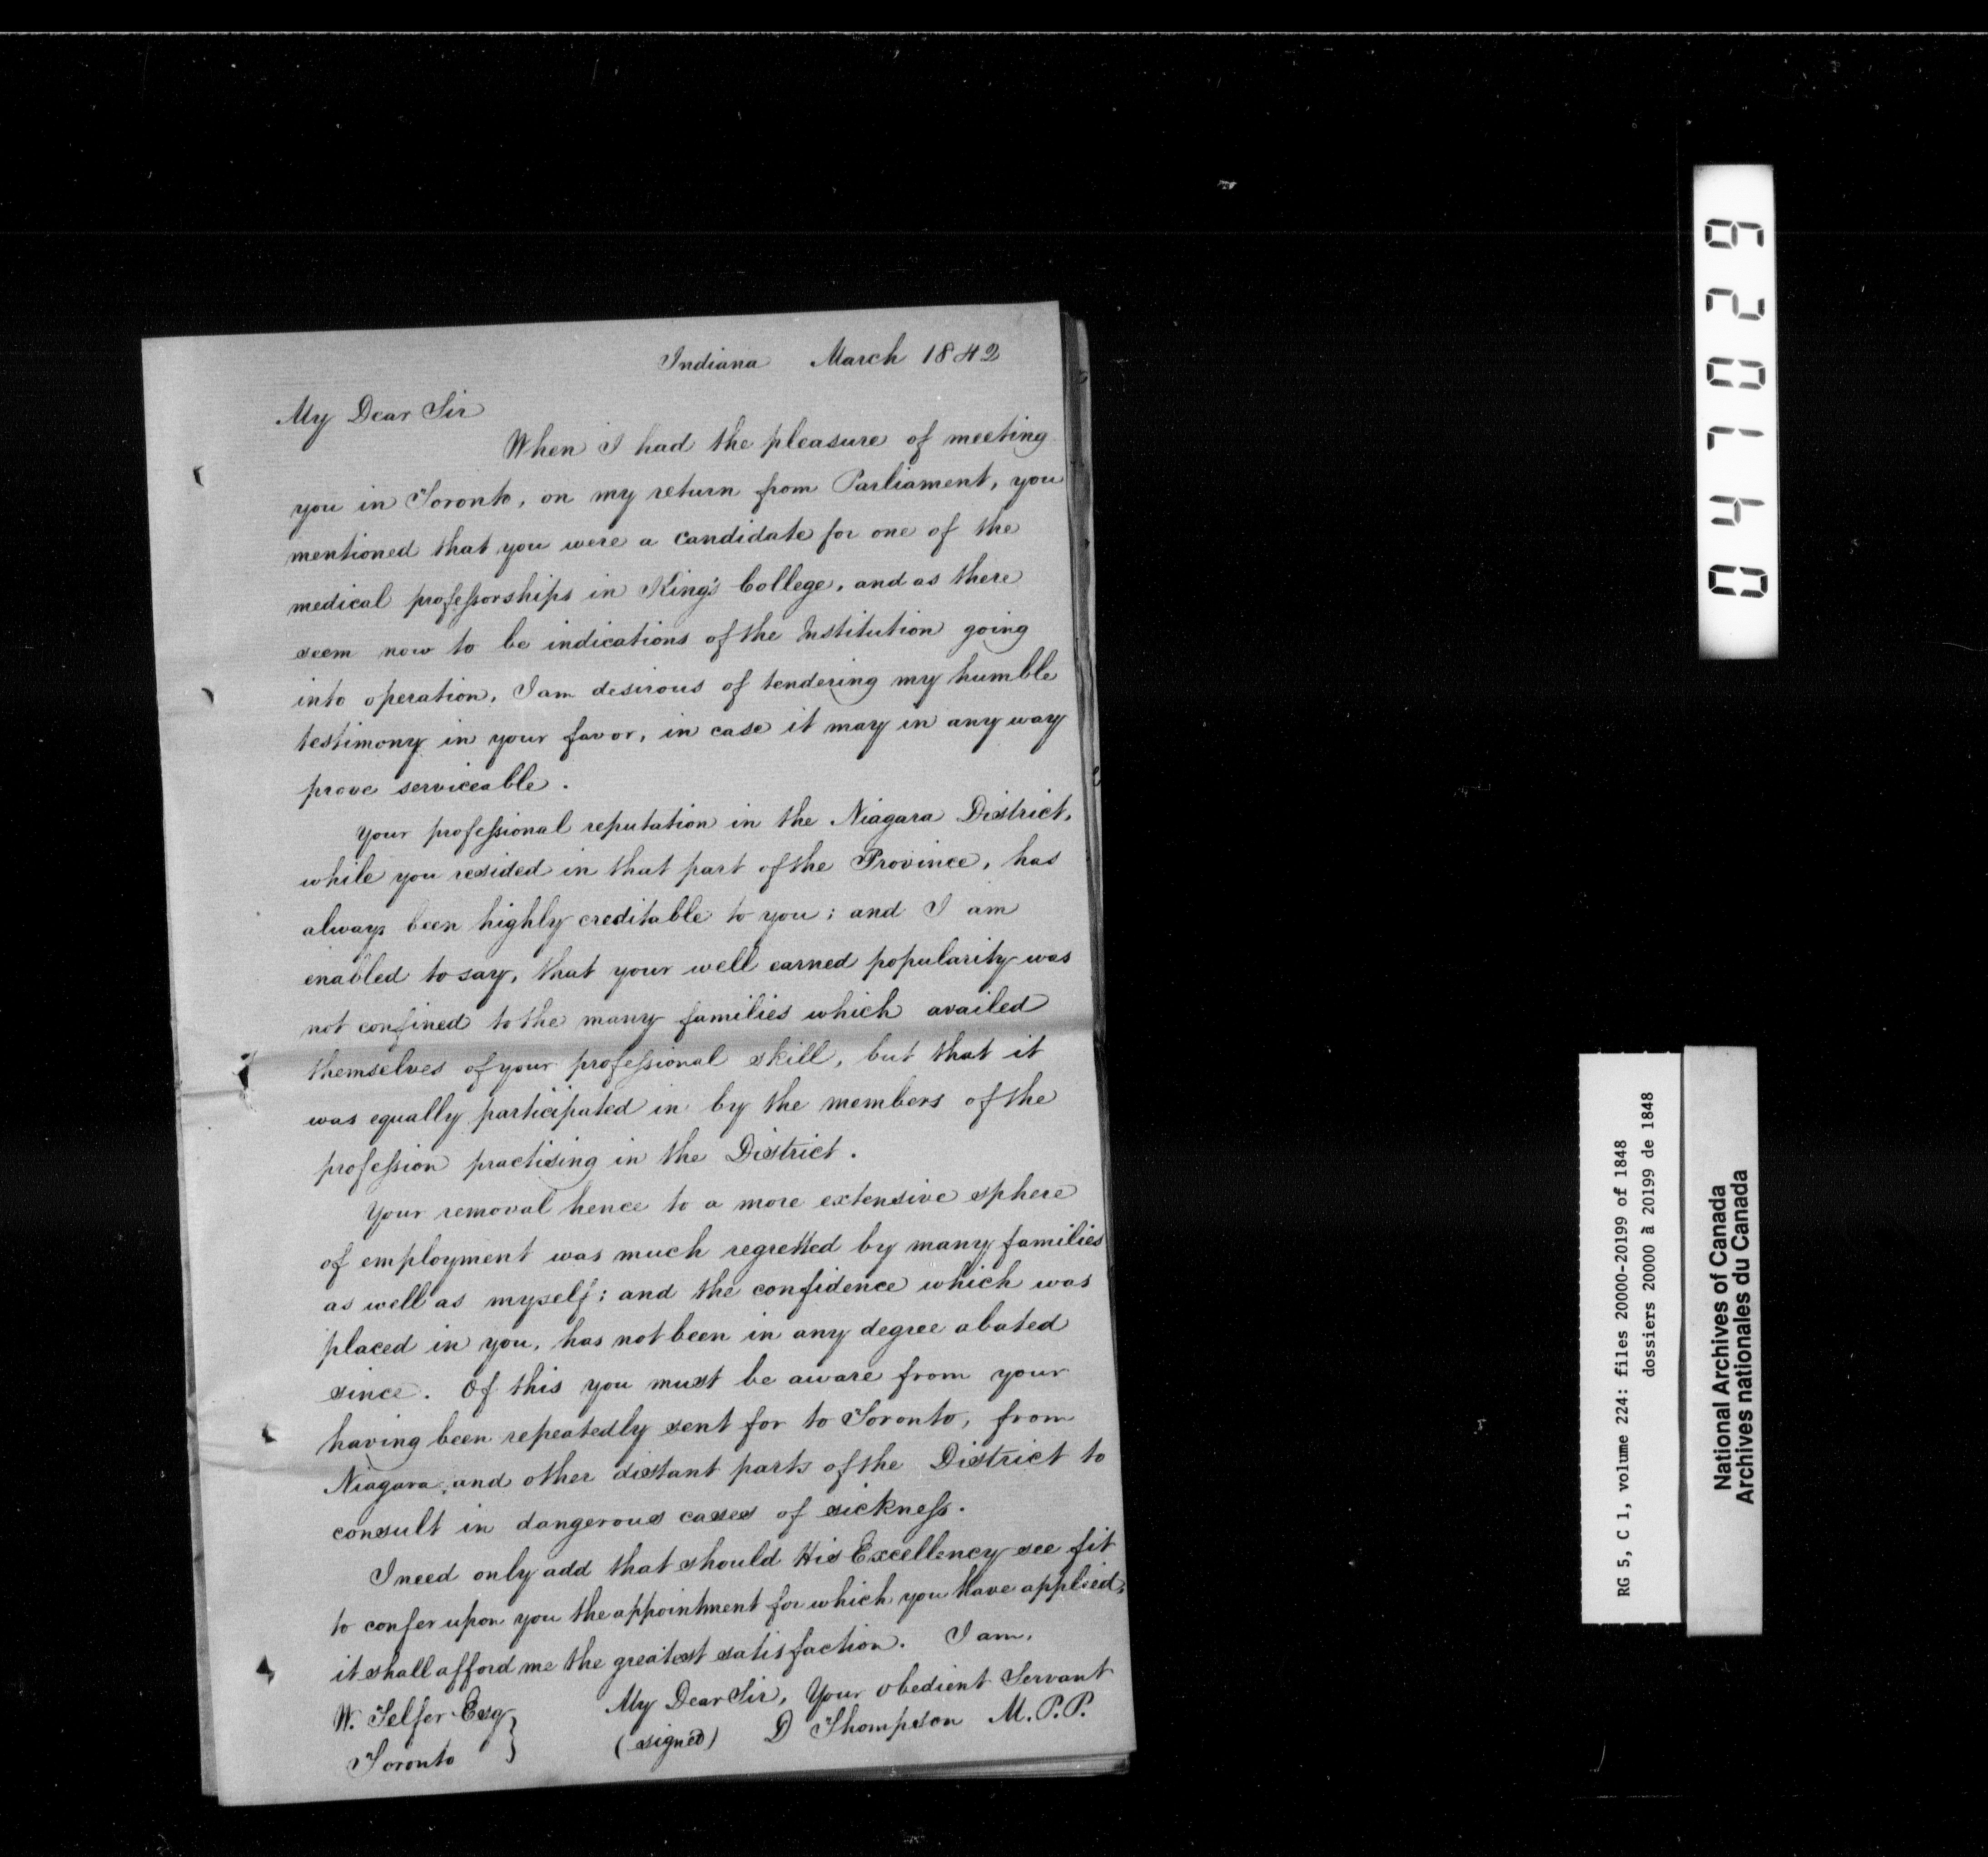 Indiana March 1842
My Dear Sir
When I had the pleasure of meeting
you in Toronto, on my return from Parliament, you
mentioned that you were a candidate for one of the
medical professorships in King's College, and as there
seem now to be indications of the Institution going
into operation, I am desirous of tendering my humble
testimony in your favor, in case it may in any way
prove serviceable.
Your professional reputation in the Niagara District,
while you resided in that part of the Province, has
always been highly creditable to you; and I am
enabled to say, that your well earned popularity was
not confined to the many families which availed
themselves of your professional skill, but that it
was equally participated in by the members of the
profession practising in the District.
Your removal hence to a more extensive sphere
of employment was much regretted by many families
as well as myself; and the confidence which was
placed in you, has not been in any degree abated
since. Of this you must be aware from your
having been repeatedly sent for to Toronto, from
Niagara, and other distant parts of the District to
consult in dangerous cases of sickness.
I need only add that should His Excellency see fit
to confer upon you the appointment for which you have applied,
it shall afford me the greatest satisfaction. I am,
My Dear Sir, Your obedient Servant
(signed) D Thompson M.P.P.
W. Telfer Esq
Toronto
047029
RG 5, C 1, volume 224: files 20000-20199 of 1848
dossiers 20000 à 20199 de 1848
National Archives of Canada
Archives nationales du Canada